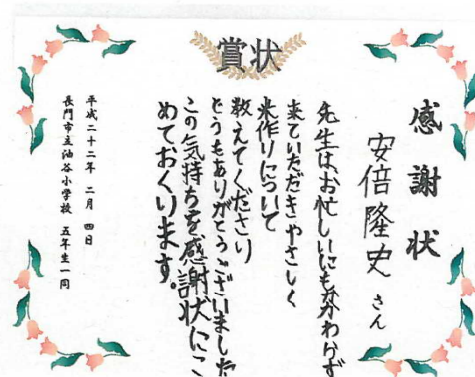 賞状
感謝状
安倍隆史 さん
先生は、お忙しいにも夯わらず
来ていただきやさしく
米作りについて
教えてくださり
どうもありがとうございました
この気持ちを感謝状にこ
めておくります。
平成二十二年 二月 四日
長門市立油谷小学校 五年生一同